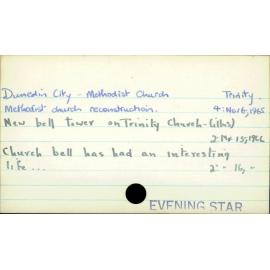 Dunedin City - Methodist Church Trinity.
Methodist church reconstruction. 4: Nov 6, 1965
New bell tower on Trinity Church - (illus)
2: Mar 15, 1966
Church bell has had an interesting
life ... 2" - 16, "
EVENING STAR